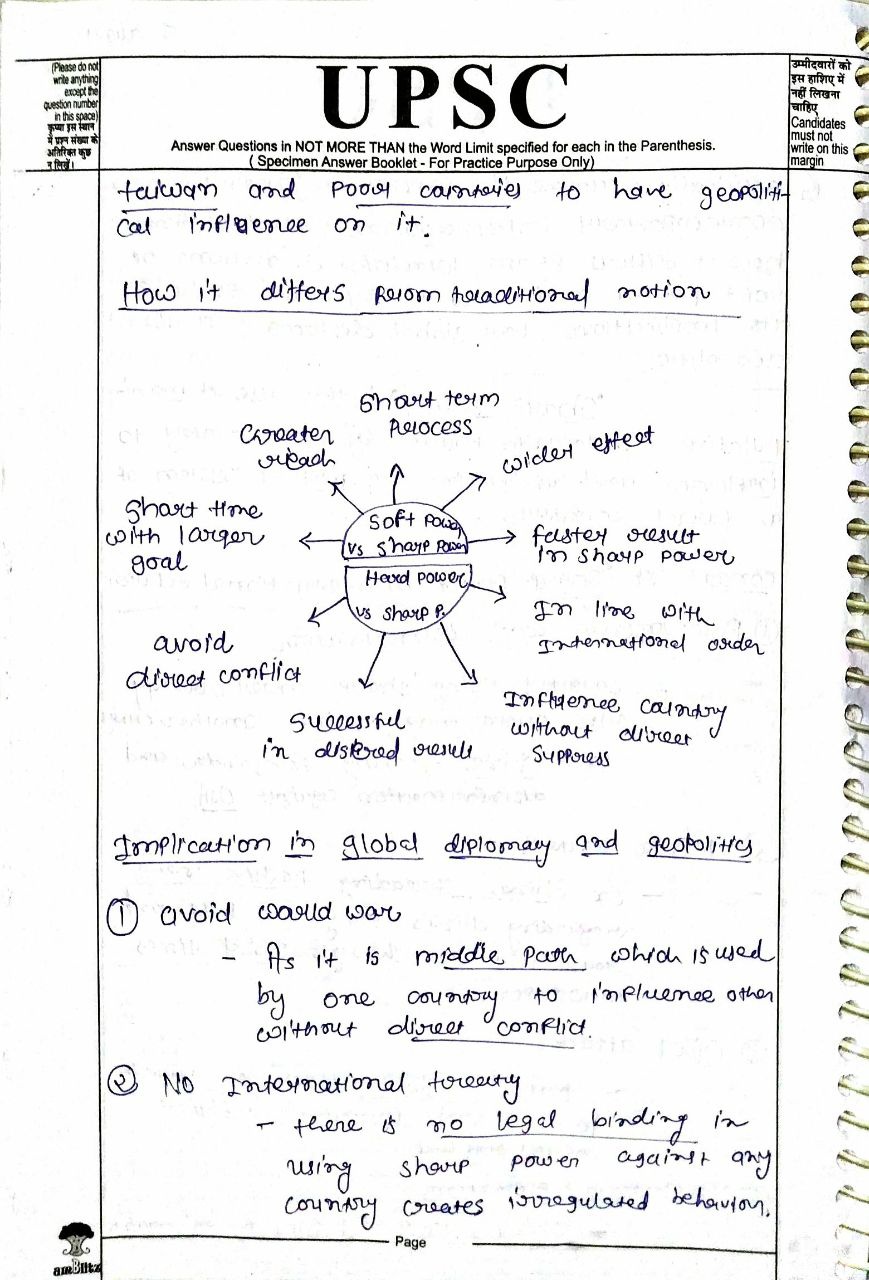 (Please do not
write anything
except the
question number
in this space)
कृपया इस स्थान
में प्रश्न संख्या के
अतिरिक्त कुछ
न लिखें।
UPSC
Answer Questions in NOT MORE THAN the Word Limit specified for each in the Parenthesis.
( Specimen Answer Booklet - For Practice Purpose Only)
उम्मीदवारों को
इस हाशिए में
नहीं लिखना
चाहिए
Candidates
must not
write on this
margin
taiwan and poor countries to have geopoliti-
cal influence on it.
How it differs from traditional notion
Short term
process
Greater
reach
wider effect
Short time
with larger
goal
Soft power
vs sharp power
faster result
in sharp power
Hard power
vs sharp P.
In line with
International order
avoid
direct conflict
Successful
in desired result
Influence country
without direct
suppress
Implication in global diplomacy and geopolitics
① avoid world war
- As it is middle path which is used
by one country to influence other
without direct conflict.
② No International treaty
- there is no legal binding in
using sharp power against any
country creates irregulated behaviour.
Page
amBlitz